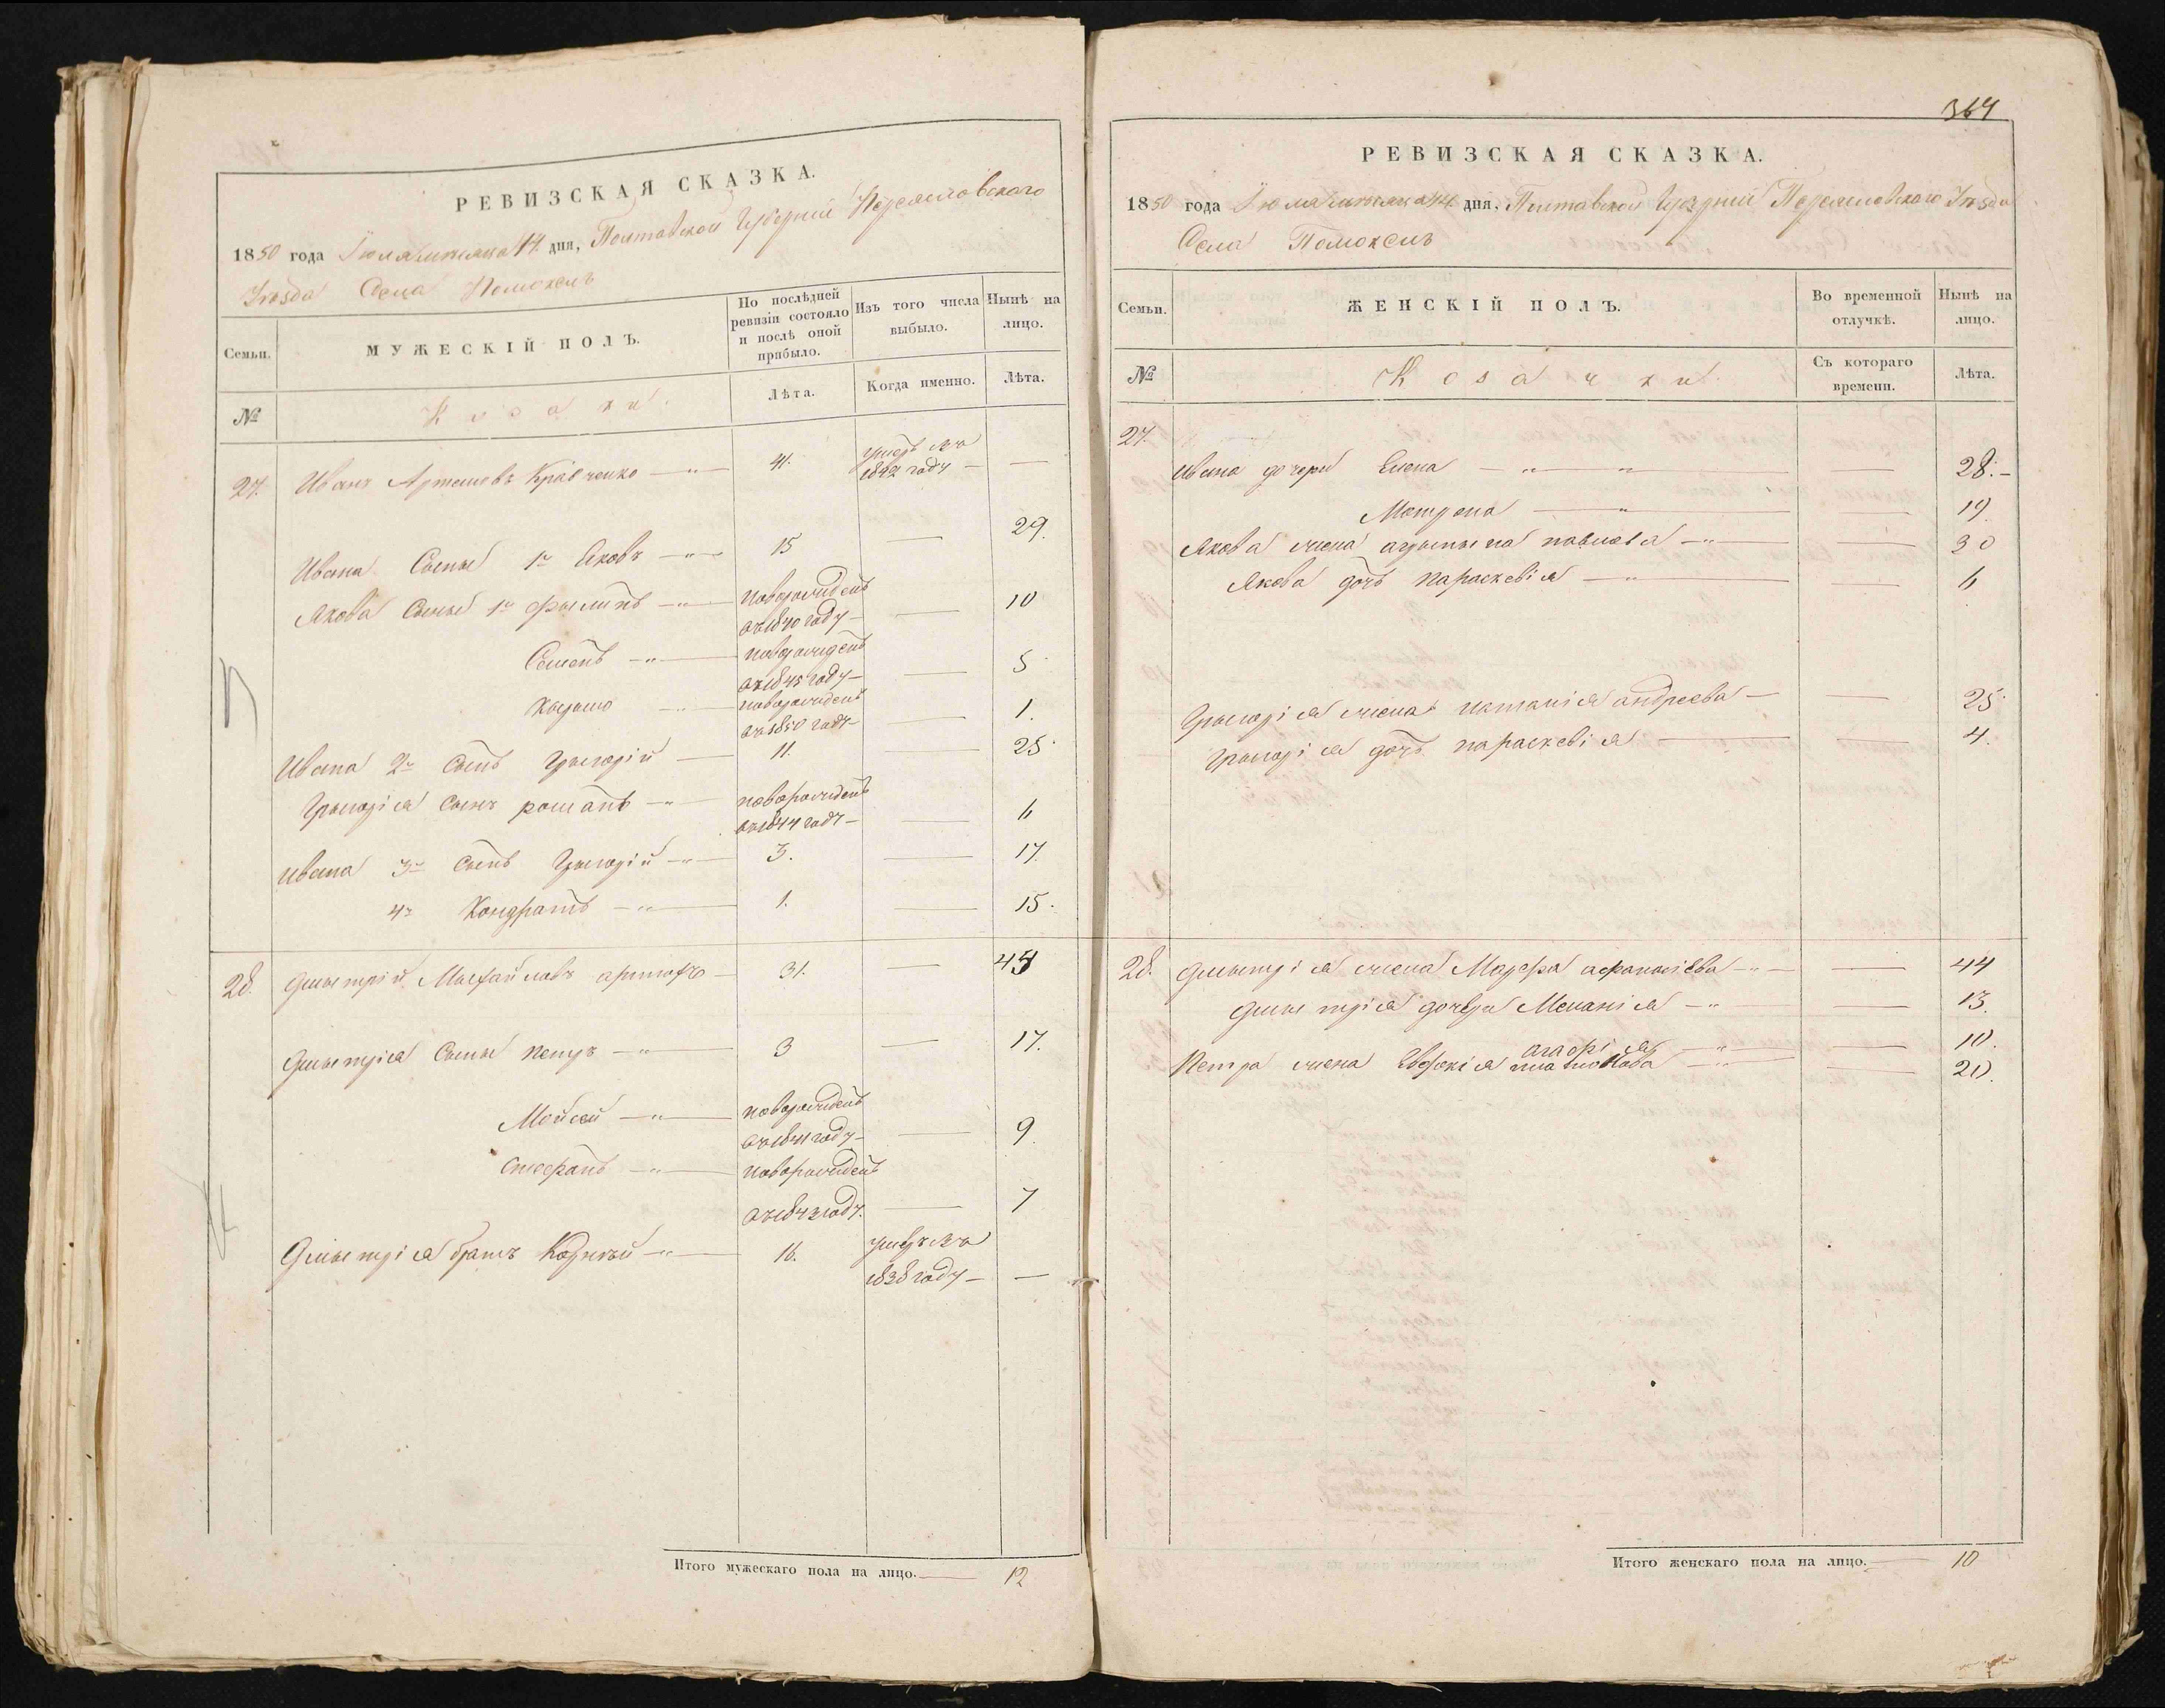 РЕВИЗСКАЯ СКАЗКА.
1850 года Іюля мѣсяца 14 дня, Полтавской Губерніи Переяславскаго
Уѣзда Села Помоклъ
Семьи.
МУЖЕСКІЙ ПОЛЪ.
По послѣдней ревизіи состояло и послѣ оной прибыло.
Изъ того числа выбыло.
Нынѣ на лицо.
№
Козаки.
Лѣта.
Когда именно.
Лѣта.
27. Иванъ Артемовъ Кравченко — 41. умеръ въ 1842 году — —
Ивана Сыны 1й Яковъ — 15 — 29.
Якова Сыны 1й Филипъ — новорожденъ въ 1840 году — — 10
Семенъ — новорожденъ въ 1845 году — — 5
— новорожденъ въ 1850 году — — 1.
Ивана 2й Сынъ Григорій — 11. — 25.
Григорія Сынъ романъ — новорожденъ въ 1844 году — — 6
Ивана 3й Сынъ Григорій — 3. — 17.
4й Кондратъ — 1. — 15.
28. Дмытрій Михайловъ — 31. — 45
Дмытрія Сыны Петръ — 3 — 17.
Мойсей — новорожденъ въ 1841 году — — 9.
Стефанъ — новорожденъ въ 1843 году. — 7
Дмытрія братъ Корнѣй — 16. умеръ въ 1838 году — —
Итого мужескаго пола на лицо. — 12
364
РЕВИЗСКАЯ СКАЗКА.
1850 года Іюля мѣсяца 14 дня, Полтавской Губерніи Переяславскаго Уѣзда
Села Помоклъ
Семьи.
ЖЕНСКІЙ ПОЛЪ.
Во временной отлучкѣ.
Нынѣ на лицо.
№
Козачки.
Съ котораго времени.
Лѣта.
27.
Ивана дочери Елена — — 28. —
Мотрона — — 19
Якова жена павлова — — 30
Якова дочь параскевія — — 6
Григорія жена наталія андреева — — 25.
Григорія дочь параскевія — — 4.
28. Дмытрія жена Марфа афанасіева — — 44
Дмытрія дочери Меланія — — 13.
агафія — — 10.
Петра жена Евфокія — — 20.
Итого женскаго пола на лицо. — 10